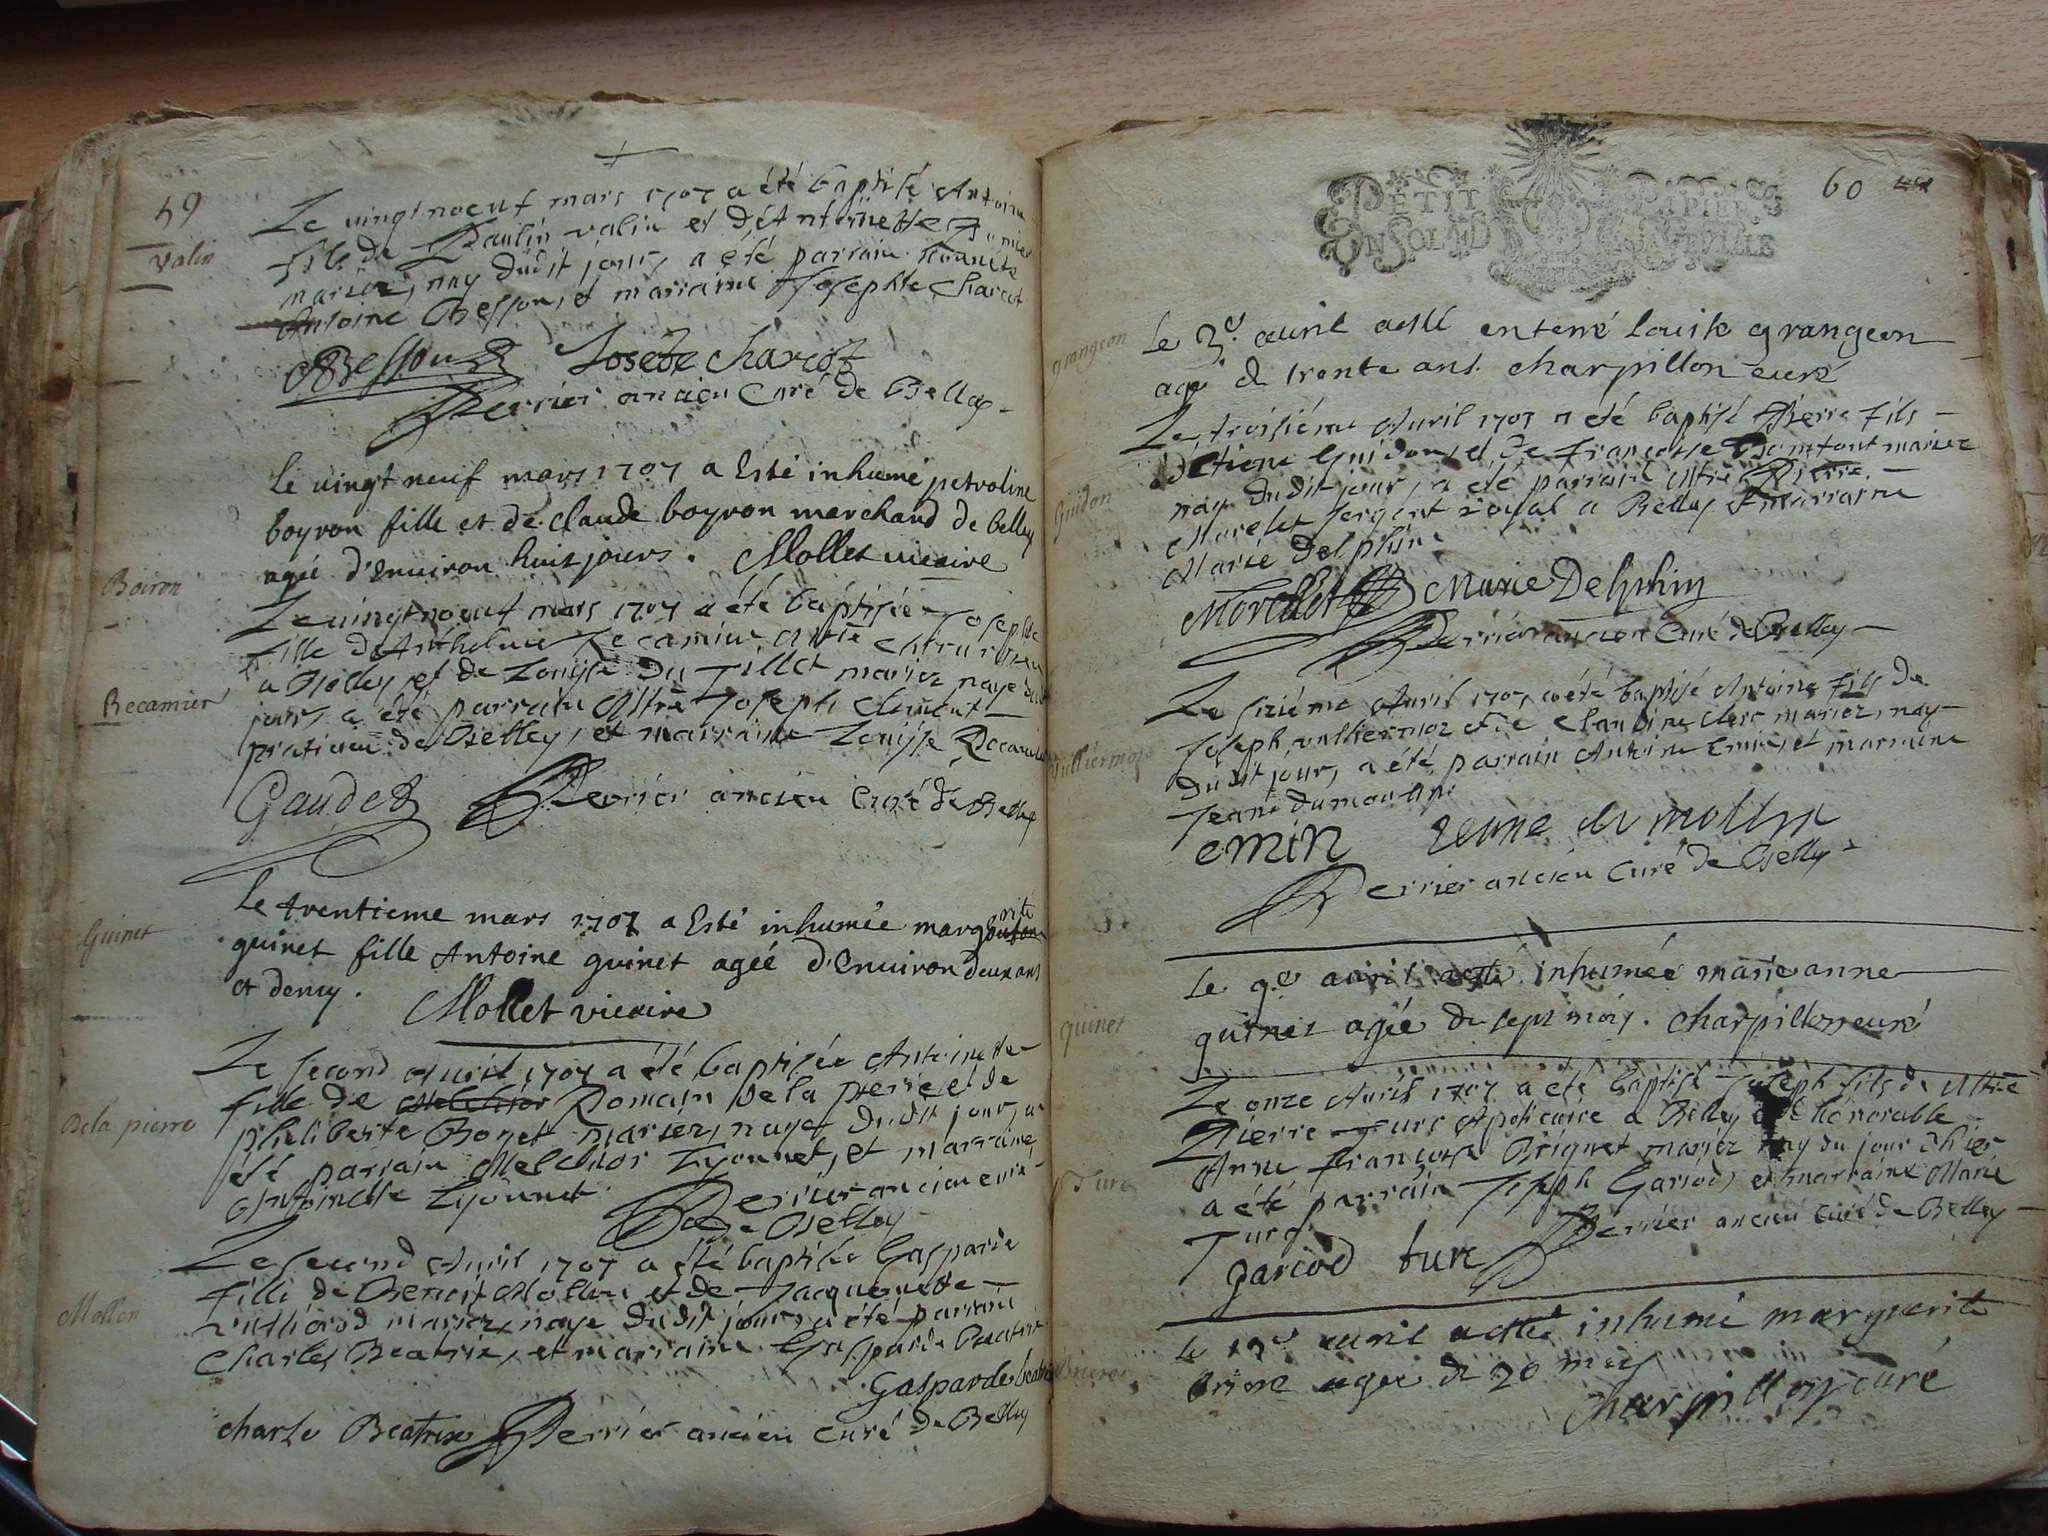 59
Valin
Le vingt noeuf mars 1707 a été baptisé Antoine
fils de Paulin valin et d'Antoinette
mariez, nay dudit jour, a été parrain honnete
Antoine Besson, et marraine Josephte Charcot
ABesson Josete charcot
Perrier ancien Curé de Belley
Boiron
le vingt neuf mars 1707 a Esté inhumé petroline
boyron fille et de claude boyron marchand de belley
agée d'environ huit jours. Mollet vicaire
Recamier
Le vingt noeuf mars 1707 a été baptisée Josephte
fille d'Anthelme Recamier Mtre Chirurgien
a Belley, et de Louyse Du Tillet mariez naye dudit
jour, a été parrain Mtre Joseph Clement
praticien de Belley, et marraine Louyse Recamier
Gaudet Perrier ancien Curé de Belley
Guinet
le trentieme mars 1707 a Esté inhumée margourite
guinet fille Antoine guinet agéé d'Environ deux ans
et demy. Mollet vicaire
De la pierre
Le second Avril 1707 a été baptisée Antoinette
fille de Melchior Romain De la pierre et de
philiberte Bonet mariez, naye dudit jour, a
été parrain Melchior Lyonnet, et marraine
Antoinette Lyonnet. Perrier ancien curé
de Belley
Mollon
Le second Avril 1707 a été baptisée Gasparde
fille de Benoit Mollon et de Jacquemette
mariez, naye dudit jour, a été parrain
Charles Beatrix, et marraine Gasparde Beatrix
Gasparde beatrix
charle Beatrix Perrier ancien Curé de Belley
60
PETIT PAPIER
UN SOL LA FEUILLE
grangeon
le 3.e avril a esté enterré louise grangeon
agé de trente ans. charpillon curé
Guidon
Le troisiéme Avril 1707 a été baptisé Pierre fils
d'Etiene Guidon, et de Françoise mariez
nay dudit jour, a été parrain Mtre Pierre
Morelet sergent royal a Belley et marraine
Marie Delphin
Morellet Marie Delphin
Perrier ancien Curé de Belley
Vulliermoz
Le siziéme Avril 1707 a été baptisé Antoine fils de
Joseph vulliermoz et de Claudine Clerc mariez, nay
dudit jour, a été parrain Antoine Emin, et marraine
Jeane dumoulin
emin Jeane du mollin
Perrier ancien Curé de Belley
guinet
le 9.e avril a esté inhumée marie anne
guinet agée de sept mois. charpillon curé
Turc
Le onze Avril 1707 a été baptisé Joseph fils de Mtre
Pierre Turc Apoticaire a Belley et de honorable
Anne Françoise Brignet mariez nay du jour d'hier
a été parrain Joseph Gariod, et marraine Marie
Turc. Perrier ancien Curé de Belley
gariod turc
le avril a esté inhumé marguerite
agee de 20 mois
charpillon curé